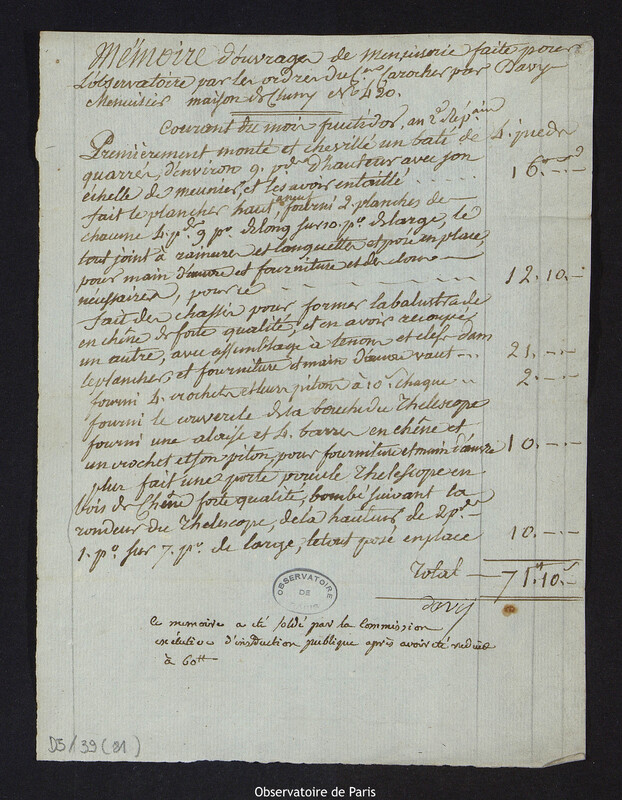 Mémoire d'ouvrages de Menuiserie faite pour
l'observatoire par les ordres du C.en Carocher par Davy
Menuisier maison de Cluny N.o 420.
Courant du mois fructidor, an 2.e Rép.ain
Premièrement monté et chevillé un bati de 4. pieds
quarrés, d'environ 9. pds d'hauteur avec son
échelle de meunier, et les avoir entaillé ..... 16 .-.-
fait le plancher haut, fourni 2 planches de
chacune 4. pds 9 po. de long sur 10. po. de large, le
tout joint à rainures et languettes et posé en place,
pour main d'œuvre et fourniture et de cloux
nécessaires, pour ce - - - 12. 10.-
fait des chassis pour former la balustrade
en chêne de forte qualité, et en avoir recoupé
un autre, avec assemblage à tenons et clefs dans
le plancher et fourniture et main d'œuvre vaut -.. 21. -.-
fourni 4. crochets et leurs pitons à 10.s chaque .. 2. -.-
fourni le couvercle de la bouche du Thelescope
fourni une alaise et 4. barres en chêne et
un crochet et son piton, pour fourniture et main d'œuvre 10. -.-
plus fait une porte pour le Thelescope en
bois de Chêne forte qualité, bombé suivant la
rondeur du Thelescope, de la hauteur de 2 pds
1. po. sur 7. po. de large, le tout posé en place 10. -.-
Total — 71.tt 10.s
davy
OBSERVATOIRE
DE
PARIS
Ce memoire a été soldé par la Commission
exécutive d'instruction publique après avoir été réduit
à 60tt
D5/39 (81)
Observatoire de Paris